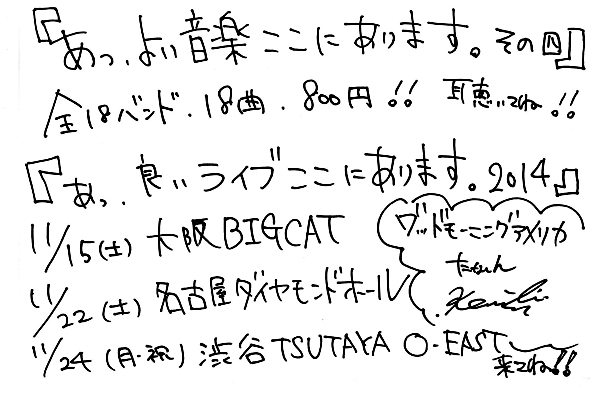 『あっ、よい音楽ここにあります。その四』
全18バンド、18曲、800円!! 耳恵いてね!!
『あっ、良いライブここにあります。2014』
11/15(土) 大阪BIGCAT
11/22(土) 名古屋ダイヤモンドホール
11/24(月・祝) 渋谷TSUTAYA O-EAST
来てね!!
グッドモーニングアメリカ